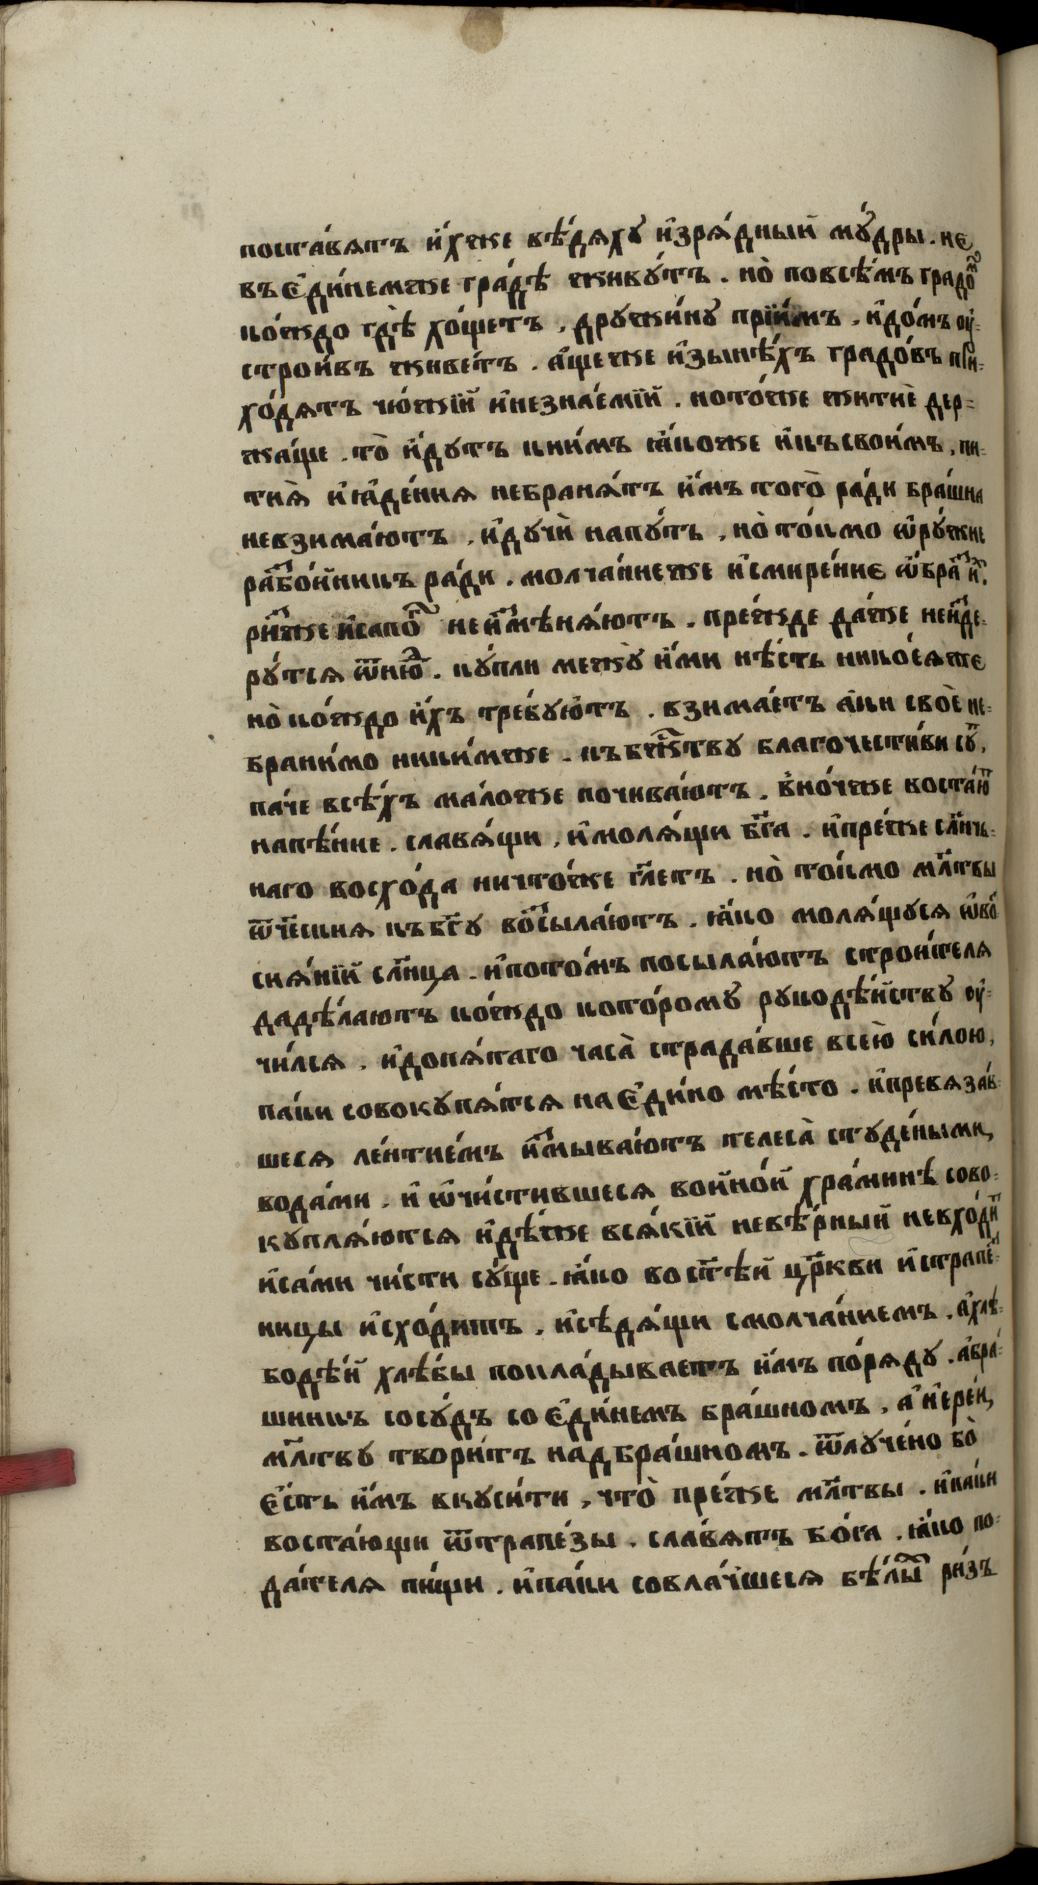 поставятъ и҆́хже вѣ́дяху и҆зря́дный мꙋ́дры . не
въ є҆ди́немже гра́дѣ живꙋ́тъ . но̀ повсѣ́мъ градо́ⷨ
ко́ждо гдѣ̀ хо́щетъ , дрꙋжи́нꙋ прїи́мъ . и҆до́мъ оу҆-
стро́ивъ живе́тъ . а҆́щеже и҆зынѣ́хъ градо́въ при-
хо́дятъ чю́жїй и҆незна́емїй . ното́же житиѐ дер-
жа́ще . то̀ и҆́дꙋтъ книмъ ꙗ҆́коже и҆къ своимъ , пи-
тиѧ̀ и҆ꙗ҆де́ния небраня́тъ и҆̀мъ того̀ ра́ди бра́шна
невзима́ютъ , и҆дꙋчѝ напꙋ́ть , но̀ то́кмо ѡ҆рꙋ́жие
раⷥбо́йникъ ра́ди . молча́ниеже и҆смире́ние ѡ҆́браⷥ и҆ⷯ .
ри́ⷥже и҆сапо́ⷢ неи҆ⷥмѣня́ютъ . пре́жде да́же неи҆ⷥде-
рꙋ́тся ѿню́ⷣ . кꙋпли межꙋ̀ и҆́ми нѣ́сть никоеяже
но̀ ко́ждо и҆́хъ требꙋю҆тъ . взима́етъ а҆́ки своѐ не-
брани́мо ники́мже . къ бж҃ствꙋ благочести́ви сꙋ́ⷮ ,
па́че всѣ́хъ ма́ложе почива́ютъ . вно́чже воста́юⷮ
напѣ́ние . славя́щи , и҆моля́щи бг҃а . и҆пре́же слн҃еч-
наго восхо́да ничто́же гл҃етъ . но̀ то́кмо мл҃твы
ѿче́ския къ бг҃ꙋ воⷥсыла́ютъ . ꙗ҆́ко моля́щꙋся ѡ҆во-
сия́нїй слн҃ца . и҆пото́мъ посыла́ютъ строи́теля
дадѣ́лаютъ ко́ждо кото́ромꙋ рꙋкодѣ́йствꙋ оу҆-
чи́лся . и҆допя́таго часа̀ страда́вше всею̀ си́лою ,
па́ки совокꙋпя́тся на є҆ди́но мѣ́сто . и҆превяза́в-
шеся ле́нтиемъ и҆ⷥмыва́ютъ телеса̀ стꙋде́ными
вода́ми . и҆ ѡ҆чи́стившеся войно́й хра́минѣ сово-
кꙋпля́ются и҆дѣ́же вся́кїй невѣ́рный невхо́диⷮ
и҆са́ми чи́сти сꙋ́ще . ꙗ҆́ко во ст҃ѣй цр҃кви и҆стрⷬапе́-
ницы и҆схо́дитъ . и҆сѣдя́щи смолча́ниемъ . а҆хлѣ-
бодѣ́й хлѣ́бы покла́дываетъ и҆́мъ по́рядꙋ . а҆бра́-
шникъ сосꙋ́дъ со є҆ди́немъ бра́шномъ , а҆ и҆ере́и
мл҃твꙋ твори́тъ надбра́шномъ . ѿлꙋче́но бо̀
є҆́сть и҆́мъ вкꙋси́ти , что̀ пре́же мл҃твы . и҆па́ки
воста́ющи ѿтрапе́зы . сла́вятъ бо́га . ꙗ҆́ко по-
да́теля пи́щи . и҆па́ки совла́чшеся бѣ́лыⷯ ри́зъ